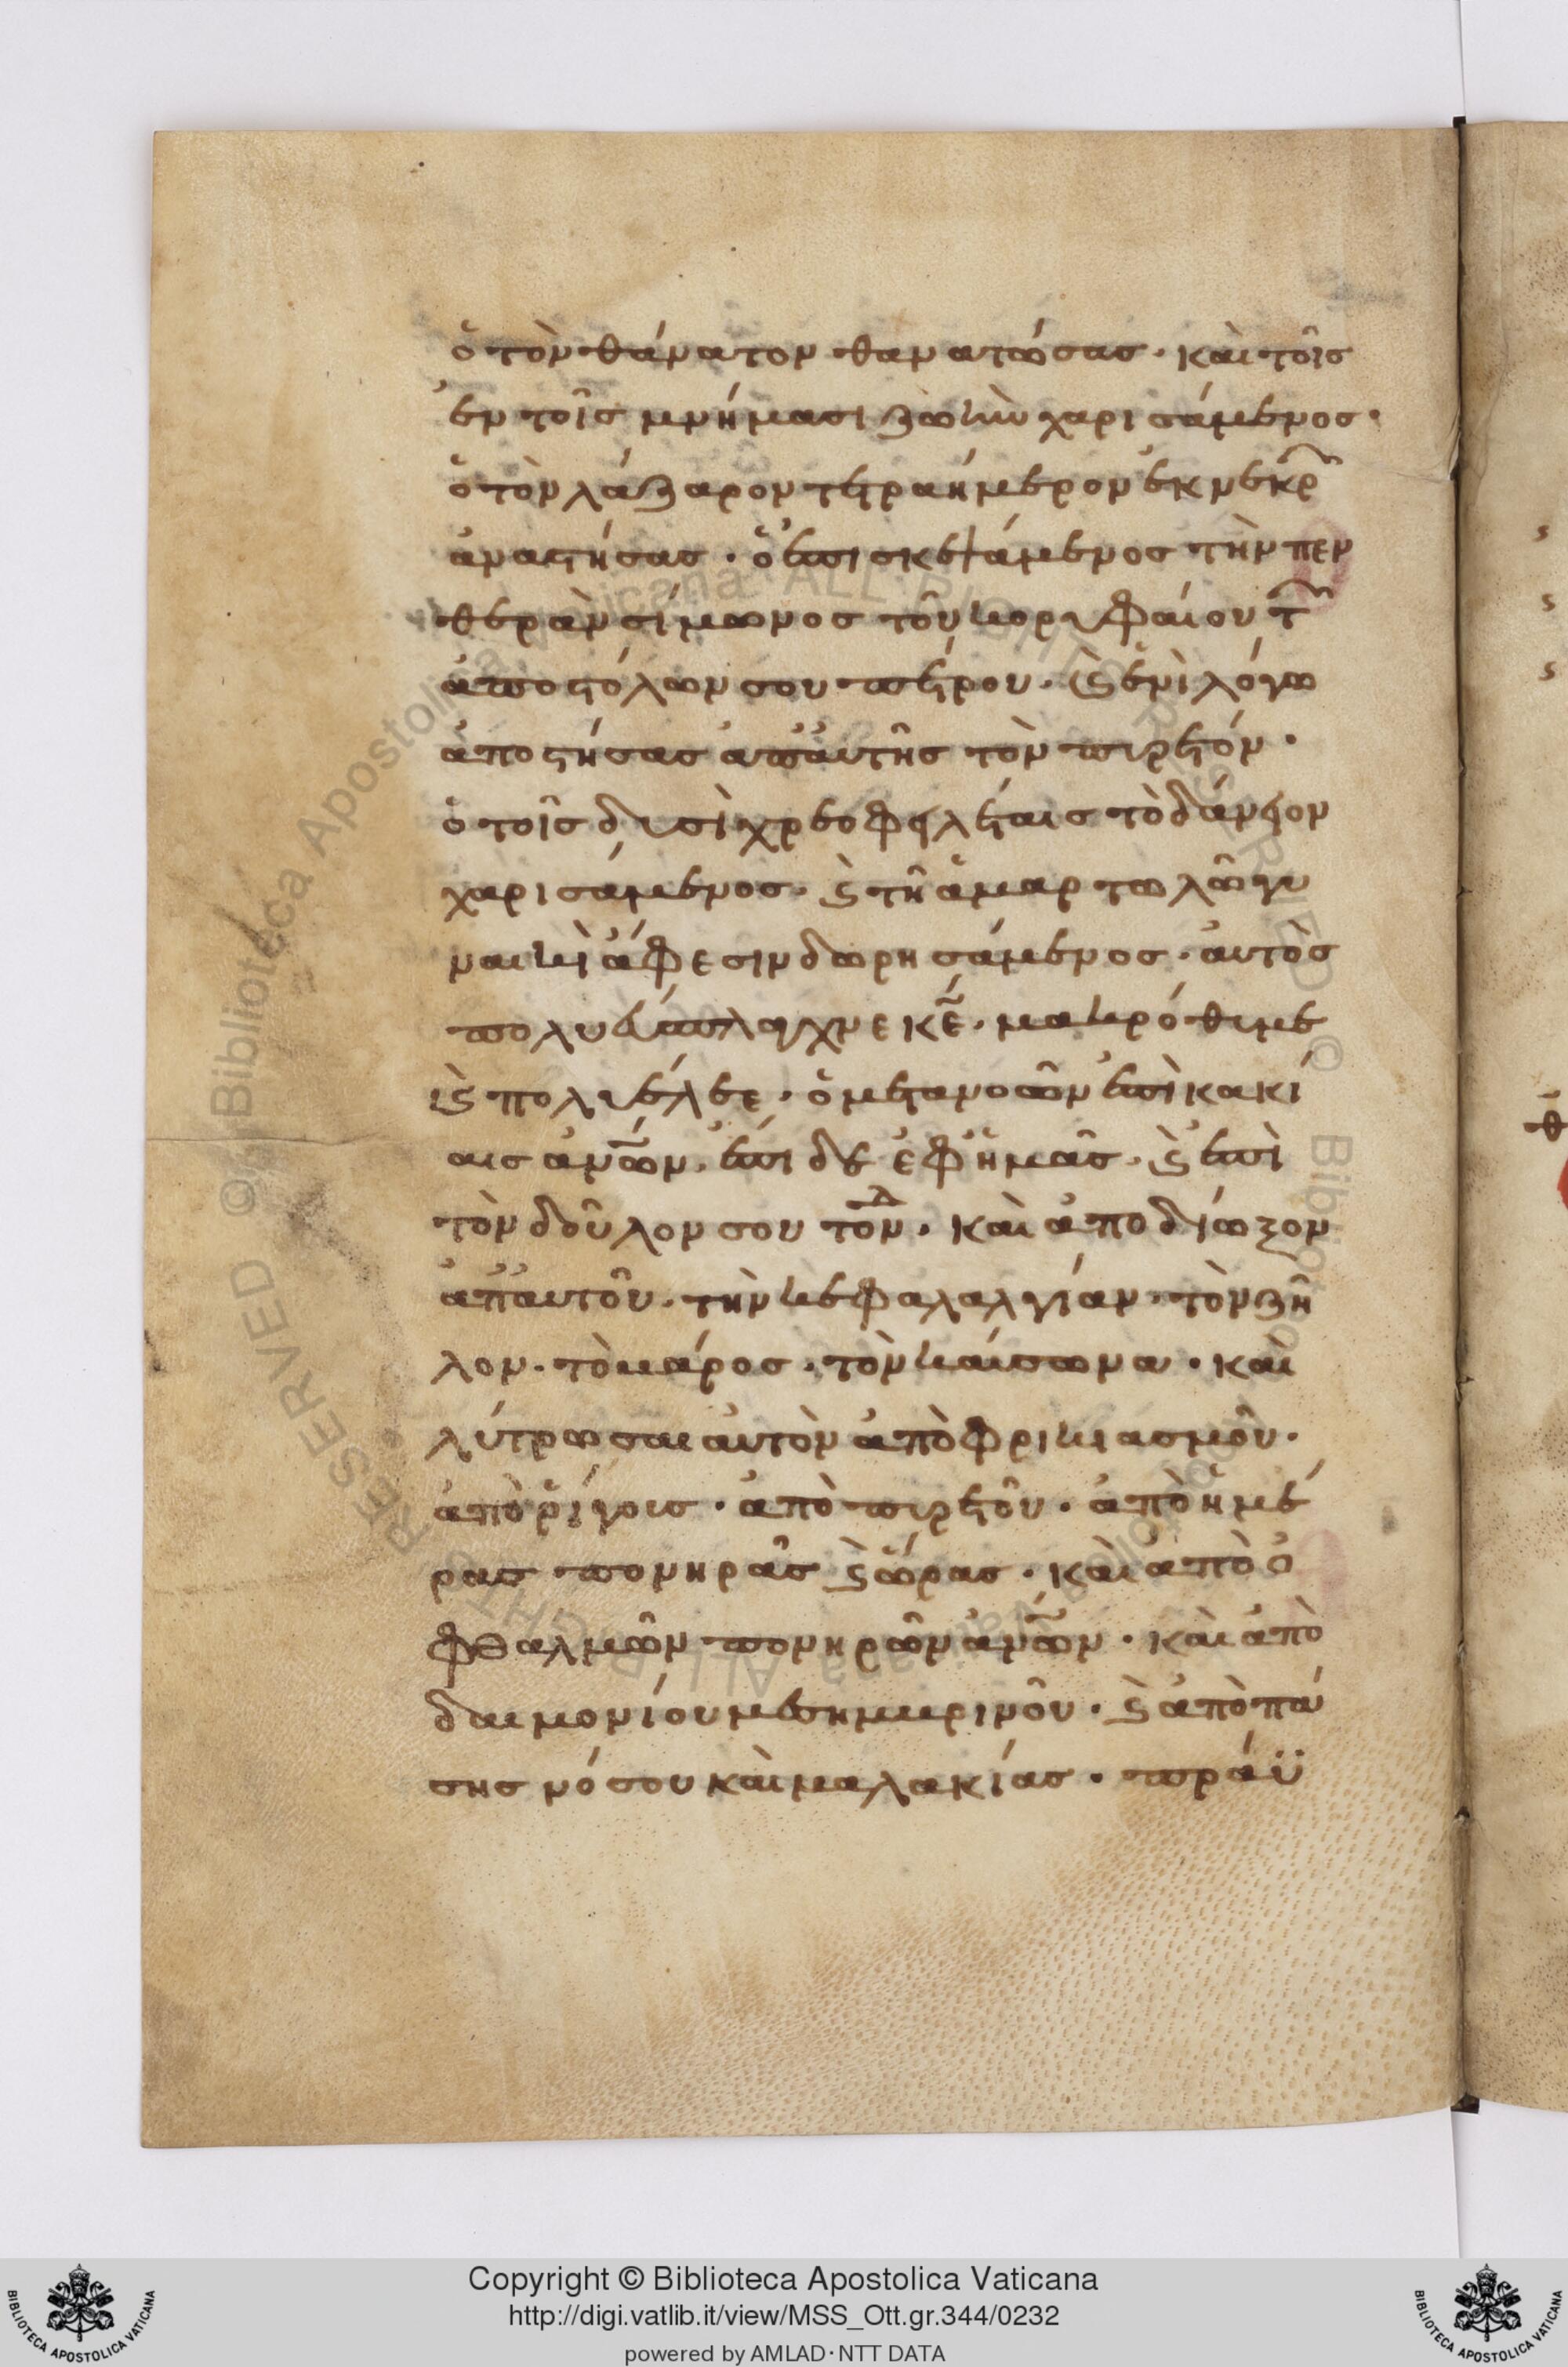 ὁ τὸν θάνατον θανατώσας· καὶ τοῖς
ἐν τοῖς μνήμασι ζωὴν χαρισάμενος·
ὁ τὸν λάζαρον τετραήμερον ἐκ νεκρ
ἀναστήσας· ὁ ἐπισκεψάμενος τὴν πεν
θερὰν σίμωνος τοῦ κορυφαίου τ
ἀποστόλων σου πέτρου· ϗ ἑνὶ λόγω
ἀποστήσας ἀπ' αὐτῆς τὸν πυρετόν·
ὁ τοῖς δυσὶ χρεοφειλέταις τὸ δάνειον
χαρισάμενος· ϗ τῆ ἁμαρτωλῶ γυ
ναικὶ ἄφεσιν δωρησάμενος· αὐτὸς
πολυεύσπλαγχνε κε· μακρόθυμε
ϗ πολυέλεε· ὁ μετανοῶν ἐπὶ κακί
αις ἀνων· ἔπιδε ἐφ' ἡμᾶς· ϗ ἐπὶ
τὸν δοῦλον σου τόνδ· καὶ ἀποδίωξον
ἀπ' αὐτοῦ· τὴν κεφαλαλγίαν· τὸν ζῆ
λον· τὸ κάρος· τὸν καύσωνα· καὶ
λύτρωσαι αὐτὸν ἀπὸ φρικιασμοῦ·
ἀπὸ ῥίγους· ἀπὸ πυρετοῦ· ἀπὸ ἡμέ
ρας πονηρᾶς ϗ ὥρας· καὶ ἀπὸ ὀ
φθαλμῶν πονηρῶν ἀνων· καὶ ἀπὸ
δαιμονίου μεσημερινοῦ· ϗ ἀπὸ πά
σης νόσου καὶ μαλακίας· πράϋ
Copyright © Biblioteca Apostolica Vaticana
http://digi.vatlib.it/view/MSS_Ott.gr.344/0232
powered by AMLAD · NTT DATA
BIBLIOTECA APOSTOLICA VATICANA
BIBLIOTECA APOSTOLICA VATICANA